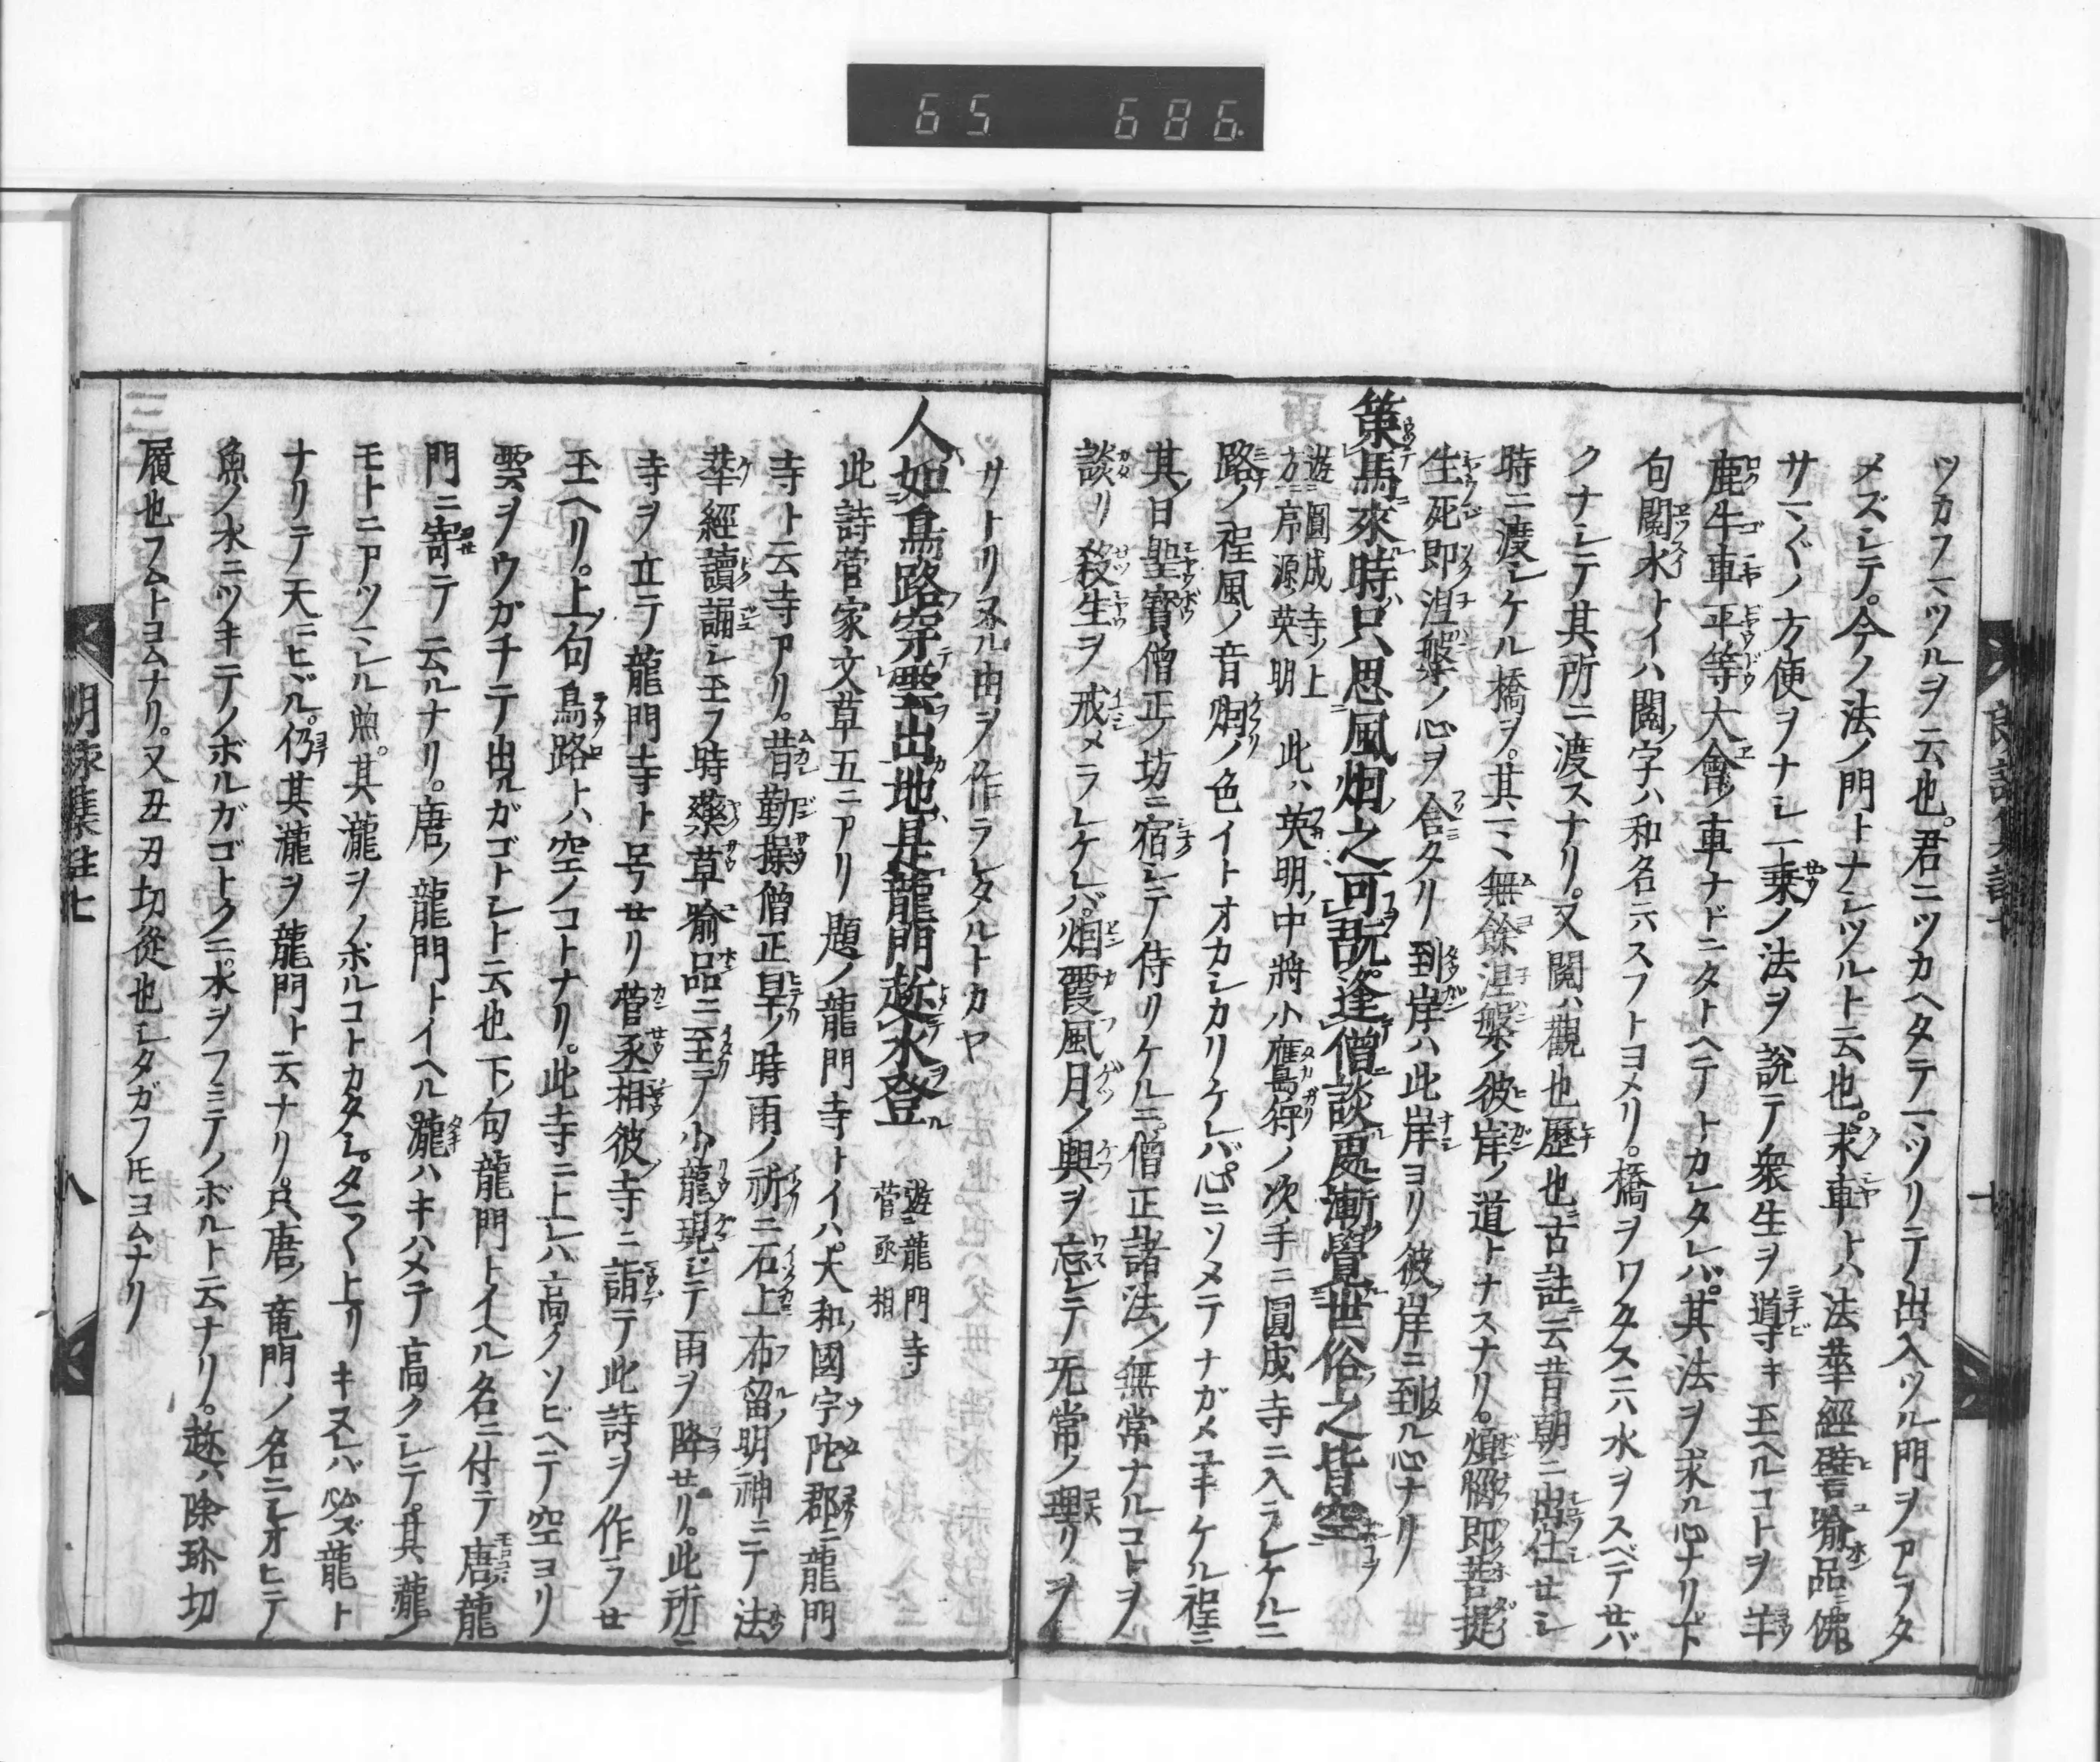 65 686
ツカフマツルヲ云也。君ニツカヘタテマツリテ出入ツル門ヲアラタ
メズシテ。今ノ法ノ門トナシツルト云也。求車トハ法華經譬喩品ニ佛
サマ〴〵ノ方便ヲナシ一乗ノ法ヲ説テ衆生ヲ導キ玉ヘルコトヲ羊
鹿牛車平等大會ノ車ナドニタトヘテトカレタレバ。其法ヲ求ル心ナリ下
句閲水トイハ閲ノ字ハ和名ニハスフトヨメリ。橋ヲワタスニハ水ヲスベテせバ
クナシテ其所ニ渡スナリ。又閲ハ觀也歴也古註ニ云昔朝ニ出仕せシ
時ニ渡シケル橋ヲ。其マヽ無餘涅槃ノ彼岸ノ道トナスナリ。煩惱即菩提
生死即涅槃ノ心ヲ含タリ到岸ハ此岸ヨリ彼岸ニ到ル心ナリ
策馬來時只思風烟之可翫逢僧談處漸覺世俗之皆空
遊圓成寺ノ上
方ニ序源英明
此ハ英明ノ中將小鷹狩ノ次手ニ圓成寺ニ入ラレケルニ
路ノ程風ノ音烟ノ色イトオカシカリケレバ。心ニソメテナガメユキケル程ニ
其ノ日聖寳僧正ノ坊ニ宿シテ侍リケルニ。僧正諸法ノ無常ナルコトヲ
談リ殺生ヲ戒メラレケレバ。烟霞風月ノ興ヲ忘レテ无常ノ理リヲ
サトリヌル由ヲ作ラレタルトカヤ
人如鳥路穿雲出地是龍門趂水登
遊龍門寺
菅丞相
此詩菅家文草五ニアリ題ノ龍門寺トイハ。大和ノ國宇陀郡ニ龍門
寺ト云寺アリ。昔勤操僧正旱ノ時雨ノ祈ニ石上布留ノ明神ニテ法
華經讀誦シ玉フ時藥草喩品ニ至テ小龍現ジテ雨ヲ降せリ。此所ニ
寺ヲ立テ龍門寺ト号せリ菅丞相彼寺ニ詣テ此詩ヲ作ラせ
玉ヘリ。上ノ句鳥路トハ空ノコトナリ。此寺ニ上レバ高クソビヘテ空ヨリ
雲ヲウガチテ出ルガゴトシト云也下ノ句龍門トイヘル名ニ付テ唐ノ龍
門ニ寄テ云ルナリ。唐ノ龍門トイヘル瀧ハキハメテ高クシテ。其瀧ノ
モトニアツマレル魚。其瀧ヲノボルコトカタシ。タマ〳〵上リキヌレバ必ズ龍ト
ナリテ天ニヒヾル。仍其瀧ヲ龍門ト云ナリ。只唐ノ竜門ノ名ニシオヒテ
魚ノ水ニツキテノボルガゴトクニ。水ヲフミテノボルト云ナリ。趂ハ除珍切
履也フムトヨムナリ。又丑刃切從也シタガフ氏ヨムナリ
朗詠集註七
八